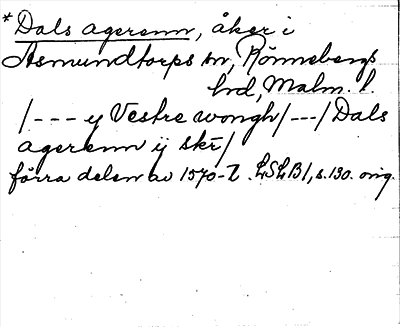 *Dals agerenn, åker i
Asmundtorps sn, Rönnebergs
hd, Malm. l.
/--- y Vestre wongh/---/Dals
agerenn ij skr/
förra delen av 1570-t. LSLB1, s. 130. orig.